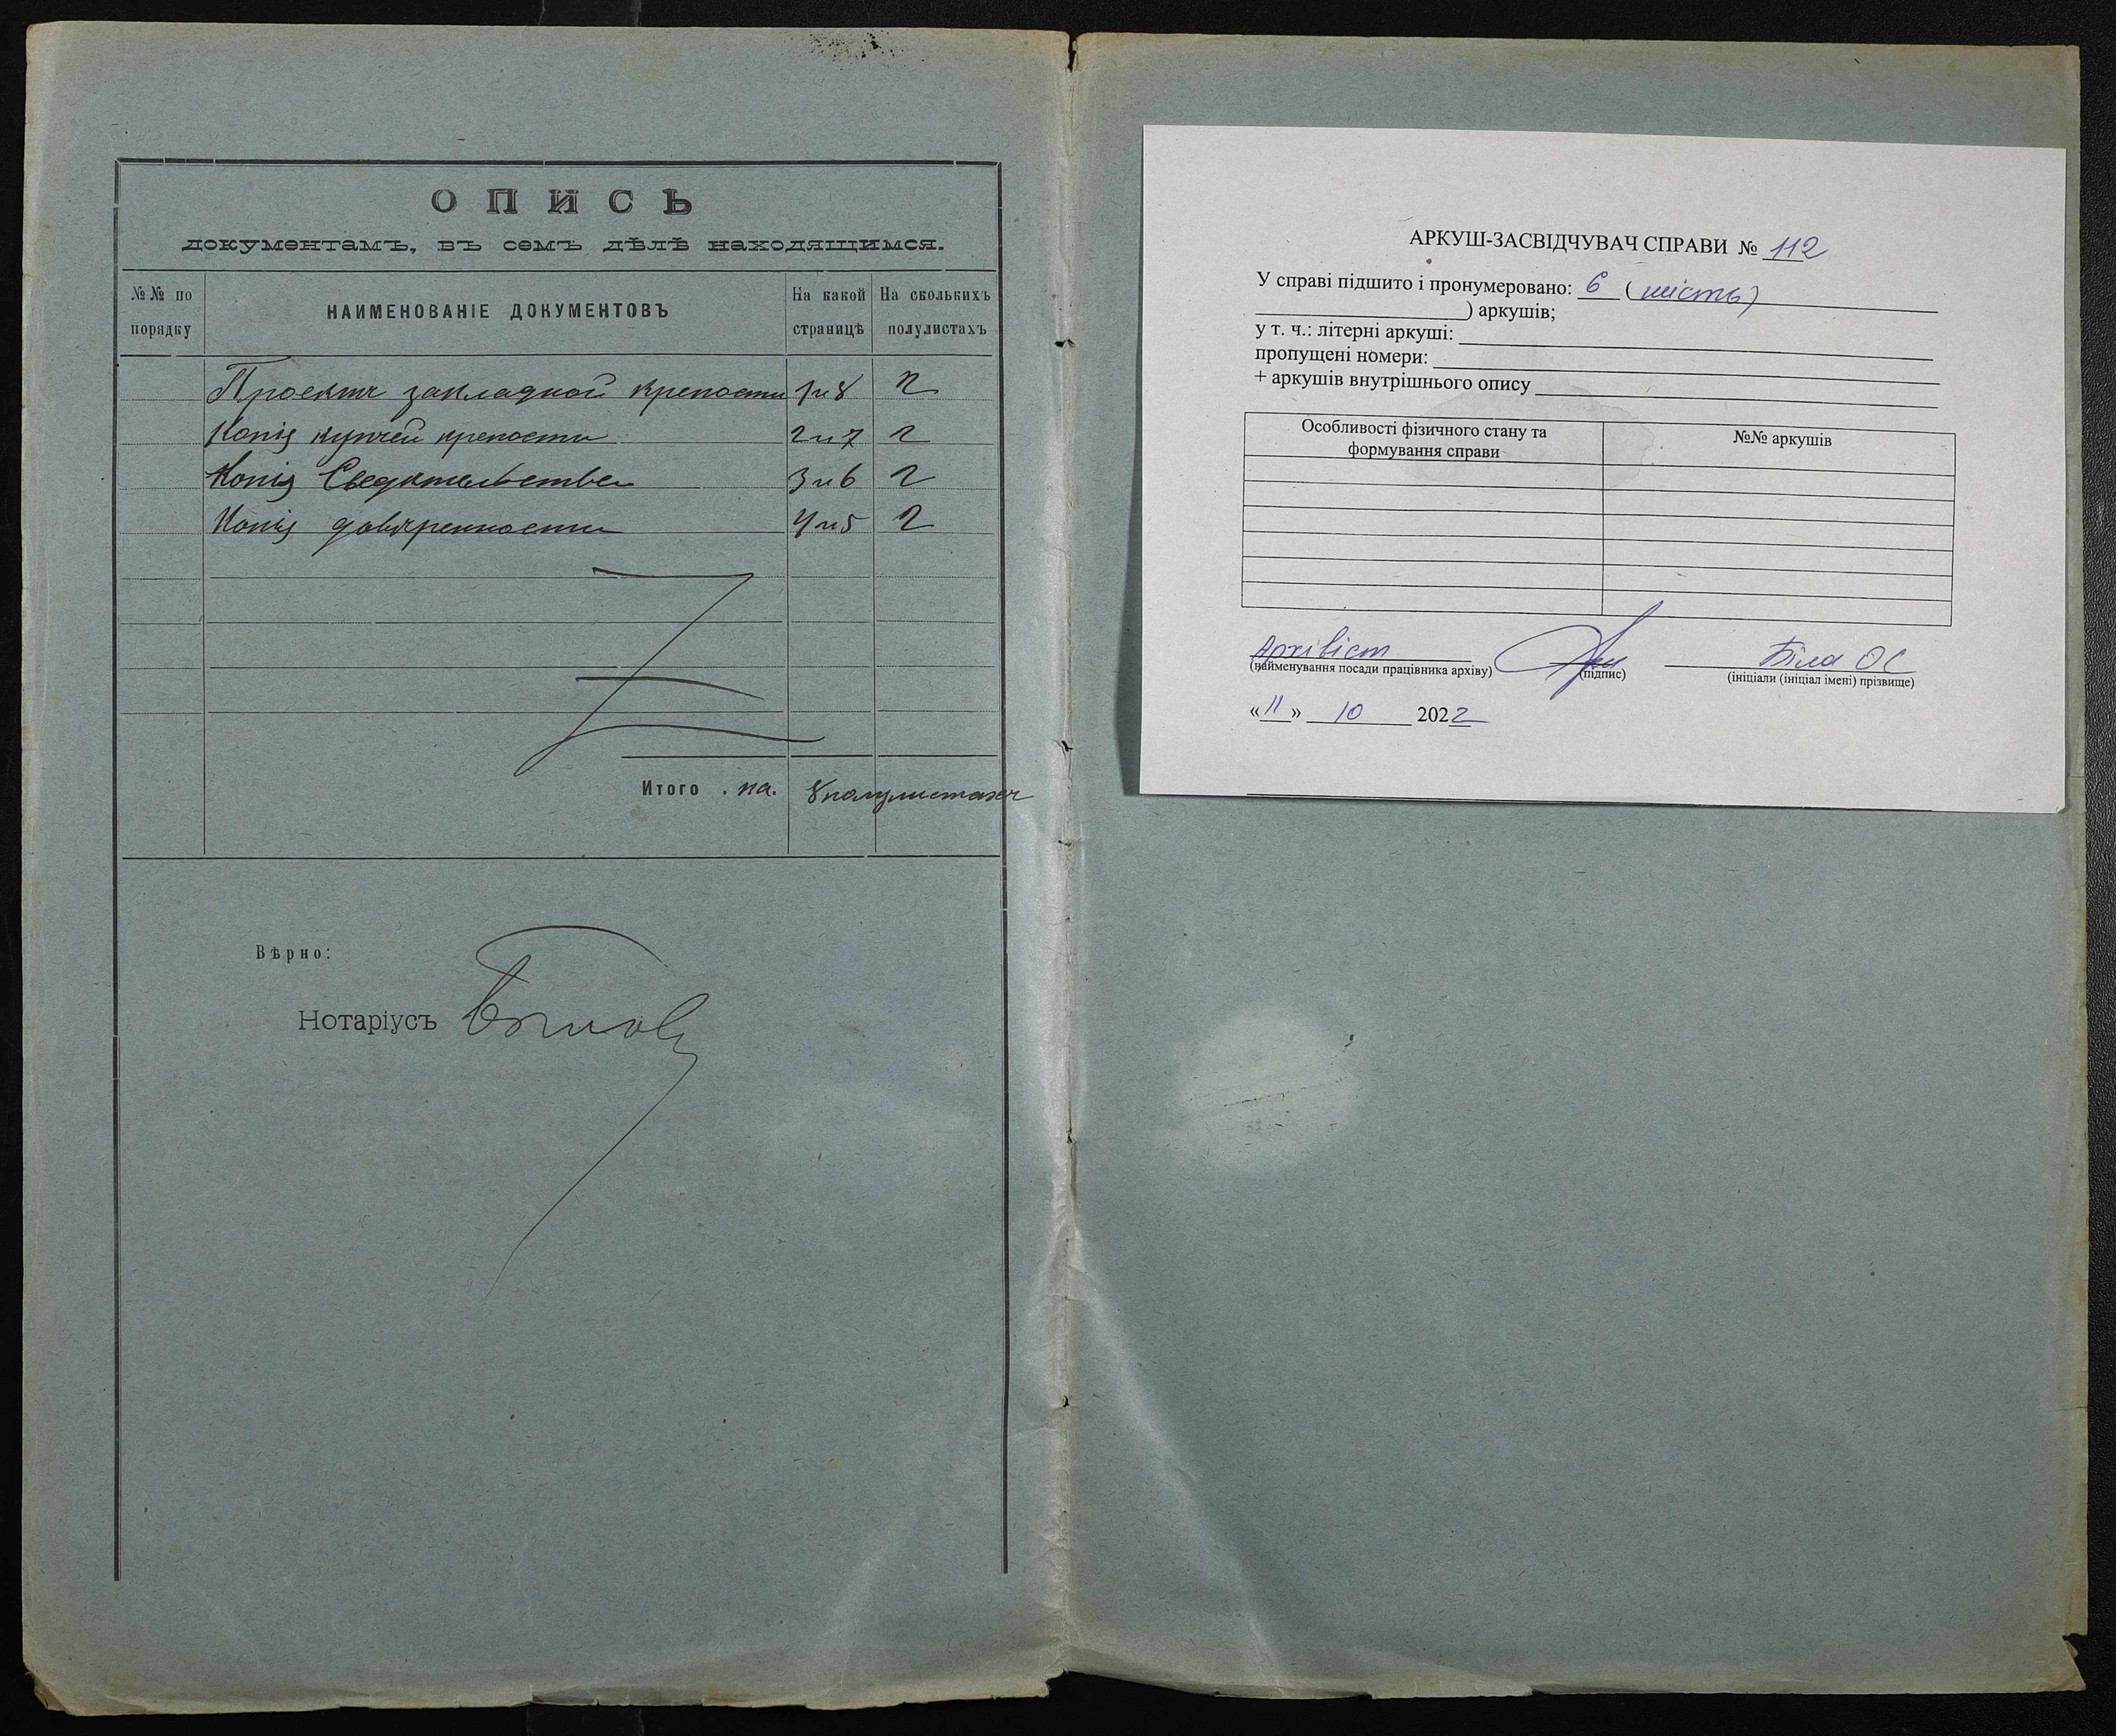 ОПИСЬ
документамъ, въ семъ дѣлѣ находящимся.
№№ по порядку
НАИМЕНОВАНІЕ ДОКУМЕНТОВЪ
На какой страницѣ
На сколькихъ полулистахъ
Проектъ закладной крепости 1и8 2
Копія купчей крепости 2и7 2
Копія Свидѣтельства 3и6 2
Копія довѣренности 4и5 2
Итого на. 8 полулистахъ
Вѣрно:
Нотаріусъ
АРКУШ-ЗАСВІДЧУВАЧ СПРАВИ № 112
У справі підшито і пронумеровано: 6 (шість)
) аркушів;
у т. ч.: літерні аркуші:
пропущені номери:
+ аркушів внутрішнього опису
Особливості фізичного стану та
формування справи
№№ аркушів
Архівіст Біла ОС
(найменування посади працівника архіву) (підпис) (ініціали (ініціал імені) прізвище)
«11» 10 2022